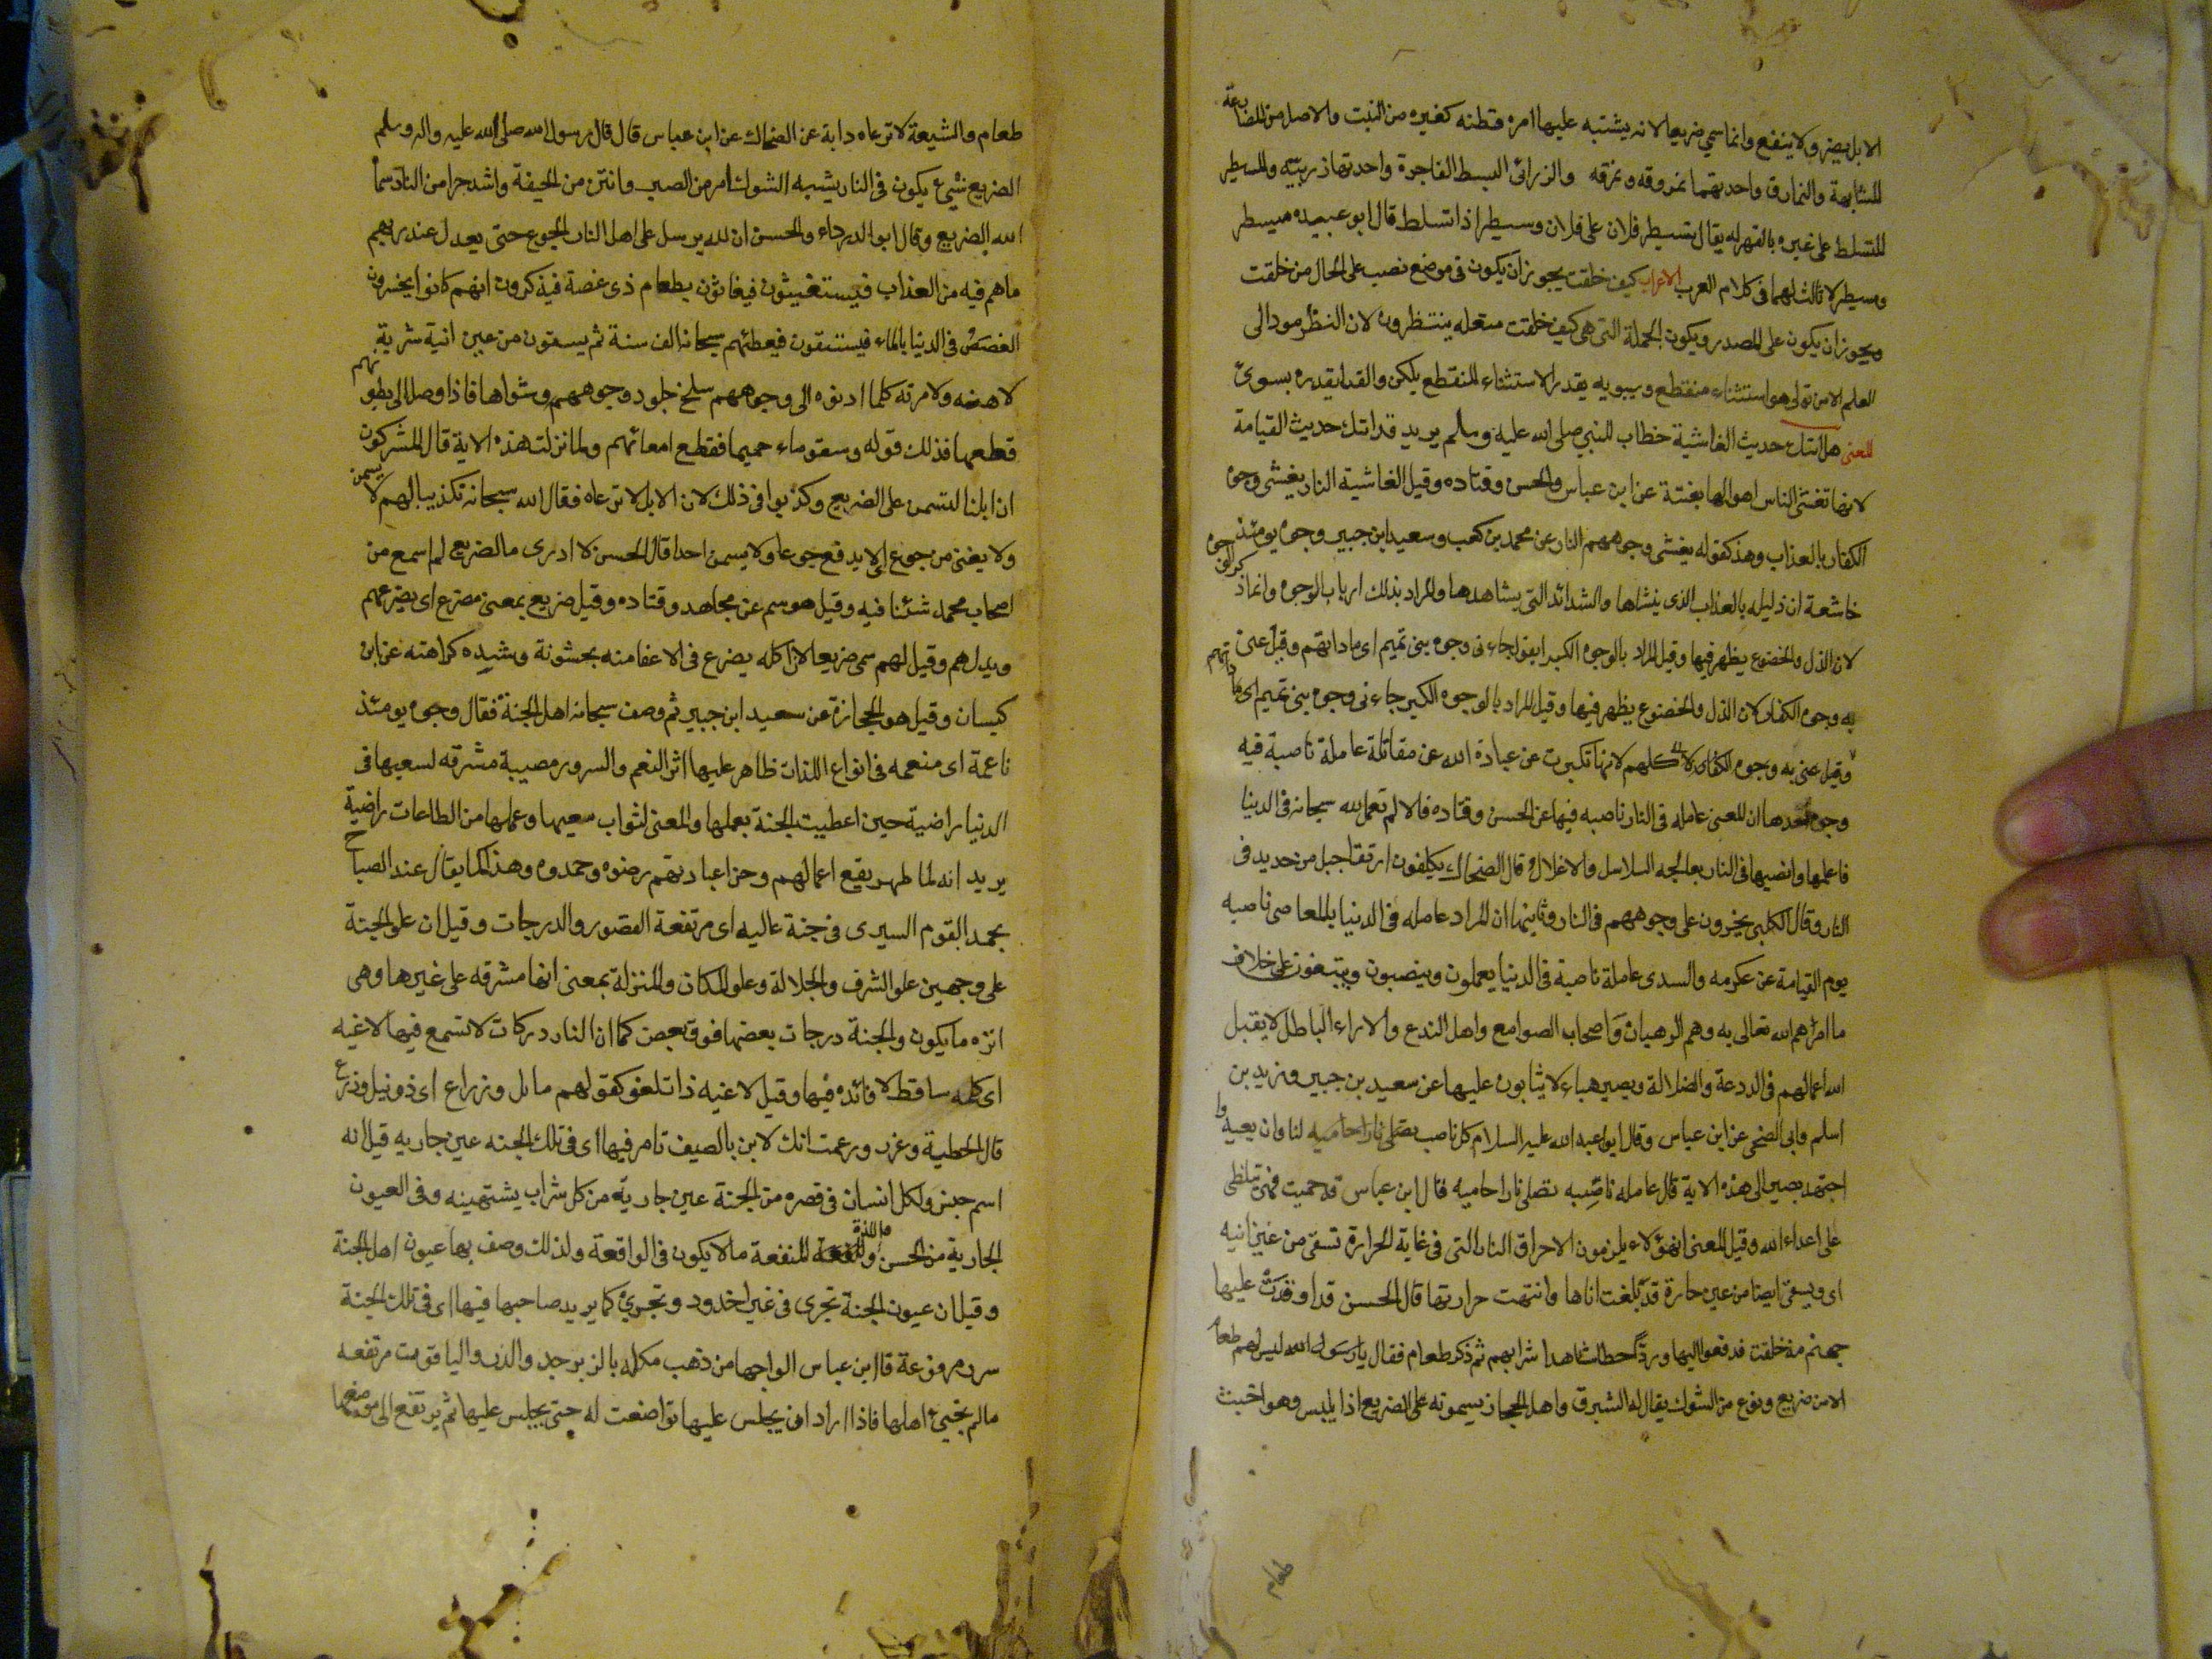 الابل يضر ولا ينفع وانما سمي ضريعا لانه يشتبه عليها امره فتظنه كغيره من النبت والاصل من المضارعة
المشابهة والنمارق واحدتهما نمروقه ونمرقه والزرابي البسط الفاخرة واحدتها زربيه والمسيطر
المتسلط على غيره بالقهر له يقال تسيطر فلان على فلان وسيطر اذا تسلط قال ابو عبيده مسيطر
ومبيطر لا ثالث لهما في كلام العرب الاعراب كيف خلقت يجوز ان يكون في موضع نصب على الحال من خلقت
ويجوز ان يكون على المصدر ويكون الجملة التى هى كيف خلقت متعلقه بينتظرون لان النظر مودالى
العلم الا من تولى هو استثناء منقطع وسيبويه يقدر الاستثناء المنقطع بلكن والفرا يقدره بسوى
المعنى هل اتك حديث الغاشية خطاب للنبي صلى الله عليه وسلم يريد قد اتك حديث القيامة
لانها تغشى الناس اهوالها بغتة عن ابن عباس والحسن وقتاده وقيل الغاشية النار يغشى وجوه
الكفار بالعذاب وهذ كقوله يغشى وجوههم النار عن محمد بن كعب وسعيد ابن جبير وجوه يومئذ
خاشعة ان ذليله بالعذاب الذى يغشاها والشدائد التي يشاهدها والمراد بذلك ارباب الوجوه وانما ذكر الوجوه
لان الذل والخضوع يظهر فيها وقيل المراد بالوجوه الكبرا يقول جاءنى وجوه بني تميم اى ما داتهم وقيل عنى
به وجوه الكفار لان الذل والخضوع يظهر فيها وقيل المراد بالوجوه الكبر جاءنى وجوه بني تميم اى ما داتهم
وقيل عنى به وجوه الكفار كلهم لانها تكبرت عن عبادة الله عن مقاتلة عاملة ناصبة فيه
وجوه احدها ان المعنى عامله في النار ناصبه فيها عن الحسن وقتاده قالا لم تعمل لله سبحانه في الدنيا
فاعملها وانصبها في النار بمعالجه السلاسل والاغلال قال الضحاك يكلفون ارتقا جبل من حديد في
النار وقال الكلبى يجرون على وجوههم في النار وثانيها ان المراد عامله في الدنيا بالمعاصى ناصبه
يوم القيامة عن عكرمه والسدى عاملة ناصبة في الدنيا يعملون وينصبون ويتبعون على خلاف
ما امرهم الله تعالى به وهم الرهبان واصحاب الصوامع واهل البدع والاراء الباطل لا يقبل
الله اعمالهم في البدعة والضلالة ويصير هباء لا يثابون عليها عن سعيد بن جبير وزيد بن
اسلم وابى الضحى عن ابن عباس وقال ابو عبد الله عليه السلام كل ناصب لنا وان تعبد وا
اجتهد يصير الى هذه الاية قال عامله ناصبه تصلى نارا حاميه قال ابن عباس قد حميت فهى تتلظى
على اعداء الله وقيل المعنى ان هؤلاء يلزمون الاحراق النار التى في غاية الحرارة تسقى من عين انيه
اى ويسقى ايضا من عين حارة قد بلغت اناها وانتهت حرارتها قال الحسن قد اوقدت عليها
جهنم مذ خلقت فدفعوا اليها وردا عطاشا هذا شرابهم ثم ذكر طعام فقال يا رسول الله ليس لهم طعام
الا من ضريع ونوع من الشوك يقال له الشبرق واهل الحجاز يسمونه على الضريع اذا يلبس وهو اخبث
طعام
طعام والشيعة لا ترعاه دابة عن الضحاك عن ابن عباس قال قال رسول الله صلى الله عليه واله وسلم
الضريع شيء يكون في النار يشبه الشوك امر من الصبر وانتن من الجيفة واشد حرا من النار سماه
الله الضريع وقال ابو الدرداء والحسن ان لله يرسل على اهل النار الجوع حتى يعدل عندربهم
ماهم فيه من العذاب فيستغيثون فيغاثون بطعام ذى غصة فيذكرون انهم كانوا يجيزون
الغصص في الدنيا بالماء فيستسقون فيعطئهم سبحانه الف سنة ثم يسقون من عين انية شربة
لا هنيه ولا مرئه كلما ادنوه الى وجوههم سلخ جلود وجوههم وشواها فاذا وصل الى بطونهم
قطعها فذلك قوله وسقوا ماء حميما فقطع امعائهم ولما نزلت هذه الاية قال المشركون
ان ابلنا لتسمن على الضريع وكذبوا في ذلك لان الابل لا ترعاه فقال الله سبحانه تكذيبا لهم لا يسمن
ولا يغنى من جوع اى لا يدفع جوعا ولا يسمن احدا قال الحسن لا ادرى ما الضريع لم اسمع من
اصحاب محمد شئنا فيه وقيل هو سم عن مجاهد وقتاده وقيل ضريع بمعنى مضرع اى يضرعهم
ويدلهم وقيل لهم سمى ضريعا لان اكله يضرع في الاعفا منه بخشونة وشده كراهته عن ابن
كيسان وقيل هو الحجارة عن سعيد ابن جبير ثم وصف سبحانه اهل الجنة فقال وجوه يومئذ
ناعمة اى منعمه في انواع اللذات ظاهر عليها اثر النعم والسرور مضيئة مشرقه لسعيها في
الدنيا راضية حين اعطيت الجنة بعملها والمعنى لثواب سعيها وعملها من الطاعات راضية
يريد انه لما ظهر بقع اعمالهم وجزا عبادتهم رضوه وحمدوه وهذا كما يقال عند الصباح
يحمد القوم السيرى في جنة عاليه اى مرتفعة القصور والدرجات وقيل ان علو الجنة
على وجهين علو الشرف والجلالة وعلو المكان والمنزلة بمعنى انها مشرقه على غيرها وهى
انزه ما يكون والجنة درجات بعضها فوق بعض كما ان النار دركات لا تسمع فيها لاغيه
اى كلمه ساقط لا فائده فيها وقيل لاغيه ذا تلغو كقولهم ما بل وزراع اى ذو نبل وزرع
قال الحطية وغرر وزعمت انك لابن بالصيف تامر فيها اى في تلك الجنه عين جاريه قيل انه
اسم جنس ولكل انسان في قصره من الجنة عين جارية من كل شراب يشتهينه وفى العيون
الجارية من الحسن واللذة المنفعة ما لا يكون في الواقعة ولذلك وصف بها عيون اهل الجنة
وقيل ان عيون الجنة تجرى في غير اخدود وتجري كما يريد صاحبها فيها اى في تلك الجنة
سرر مرفوعة قال ابن عباس الواحها من ذهب مكلله بالزبرجد والدر والياقوت مرتفعه
مالم يجيء اهلها فاذا اراد ان يجلس عليها تواضعت له حتى يجلس عليها ثم يرتفع الى موضعها